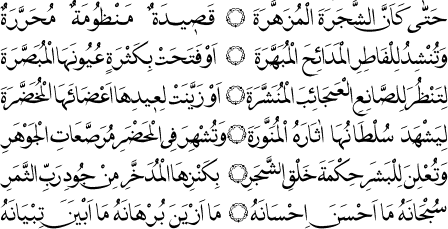 حَتّٰى كَاَنَّ الشَّجَرَةَ الْمُزَهَّرَةَ ۞ قَصِيدَةٌ مَنْظُومَةٌ مُحَرَّرَةٌ
وَتُنْشِدُ لِلْفَاطِرِ الْمَدَائِحَ الْمُبَهَّرَةَ ۞ اَوْ فَتَحَتْ بِكَثْرَةٍ عُيُونُهَا الْمُبَصَّرَةَ
لِتَنْظُرَ لِلصَّانِعِ الْعَجَائِبَ الْمُنَشَّرَةَ ۞ اَوْ زَيَّنَتْ لِعِيدِهَا اَعْضَائَهَا الْمُخَضَّرَةَ
لِيَشْهَدَ سُلْطَانُهَا اٰثَارَهُ الْمُنَوَّرَةَ ۞ وَتُشْهِرَ فِى الْمَحْضَرِ مُرَصَّعَاتِ الْجَوْهَرِ
وَتُعْلِنَ لِلْبَشَرِ حِكْمَةَ خَلْقِ الشَّجَرِ ۞ بِكَنْزِهَا الْمُدَخَّرِ مِنْ جُودِ رَبِّ الثَّمَرِ
سُبْحَانَهُ مَا اَحْسَنَ اِحْسَانَهُ ۞ مَا اَزْيَنَ بُرْهَانَهُ مَا اَبْيَنَ تِبْيَانَهُ